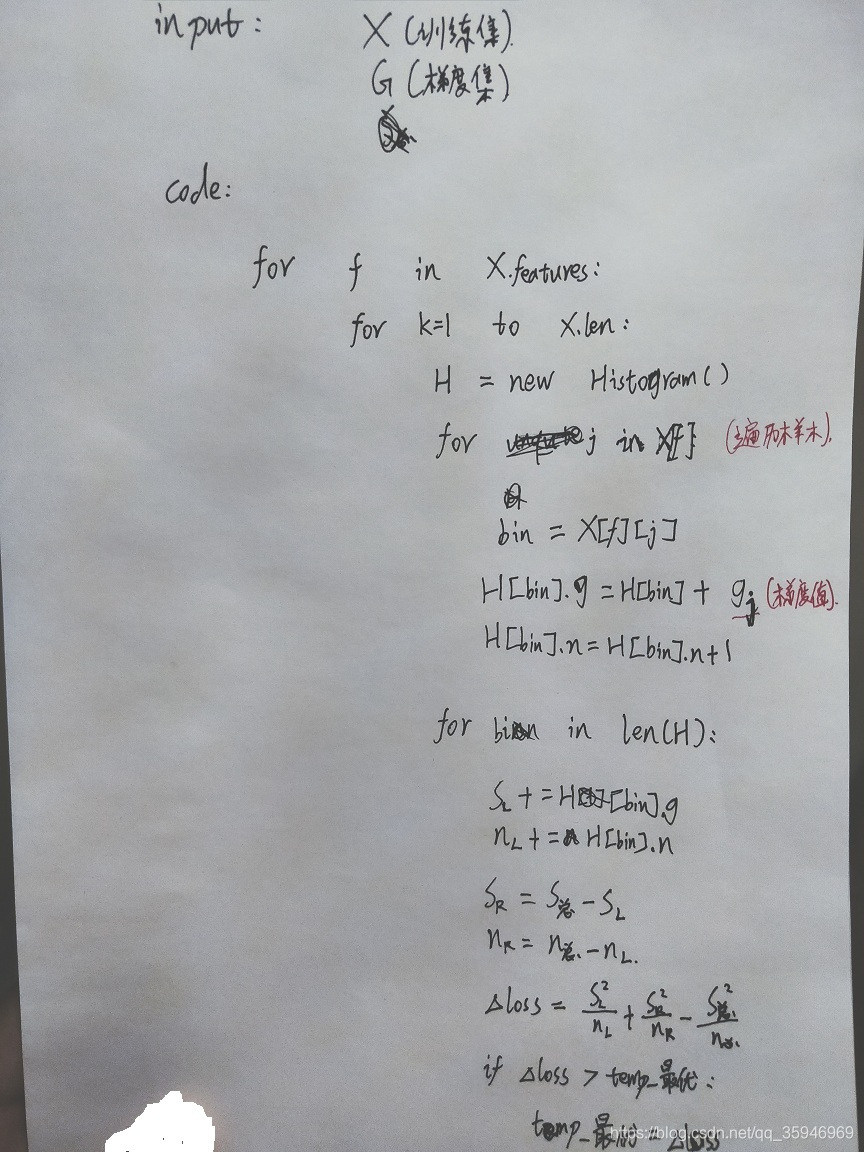 input: X (训练集).
G (梯度集)
code:
for f in X.features:
for k=1 to X.len:
H = new Histogram()
for j in X[f] (遍历样本).
bin = X[f][j]
H[bin].g = H[bin] + gj (梯度值).
H[bin].n = H[bin].n+1
for bin in len(H):
SL += H[bin].g
nL += H[bin].n
SR = S总 - SL
nR = n总 - nL.
△loss = SL²/nL + SR²/nR - S总²/n总.
if △loss > temp_最优:
temp_最优 = △loss
https://blog.csdn.net/qq_35946969